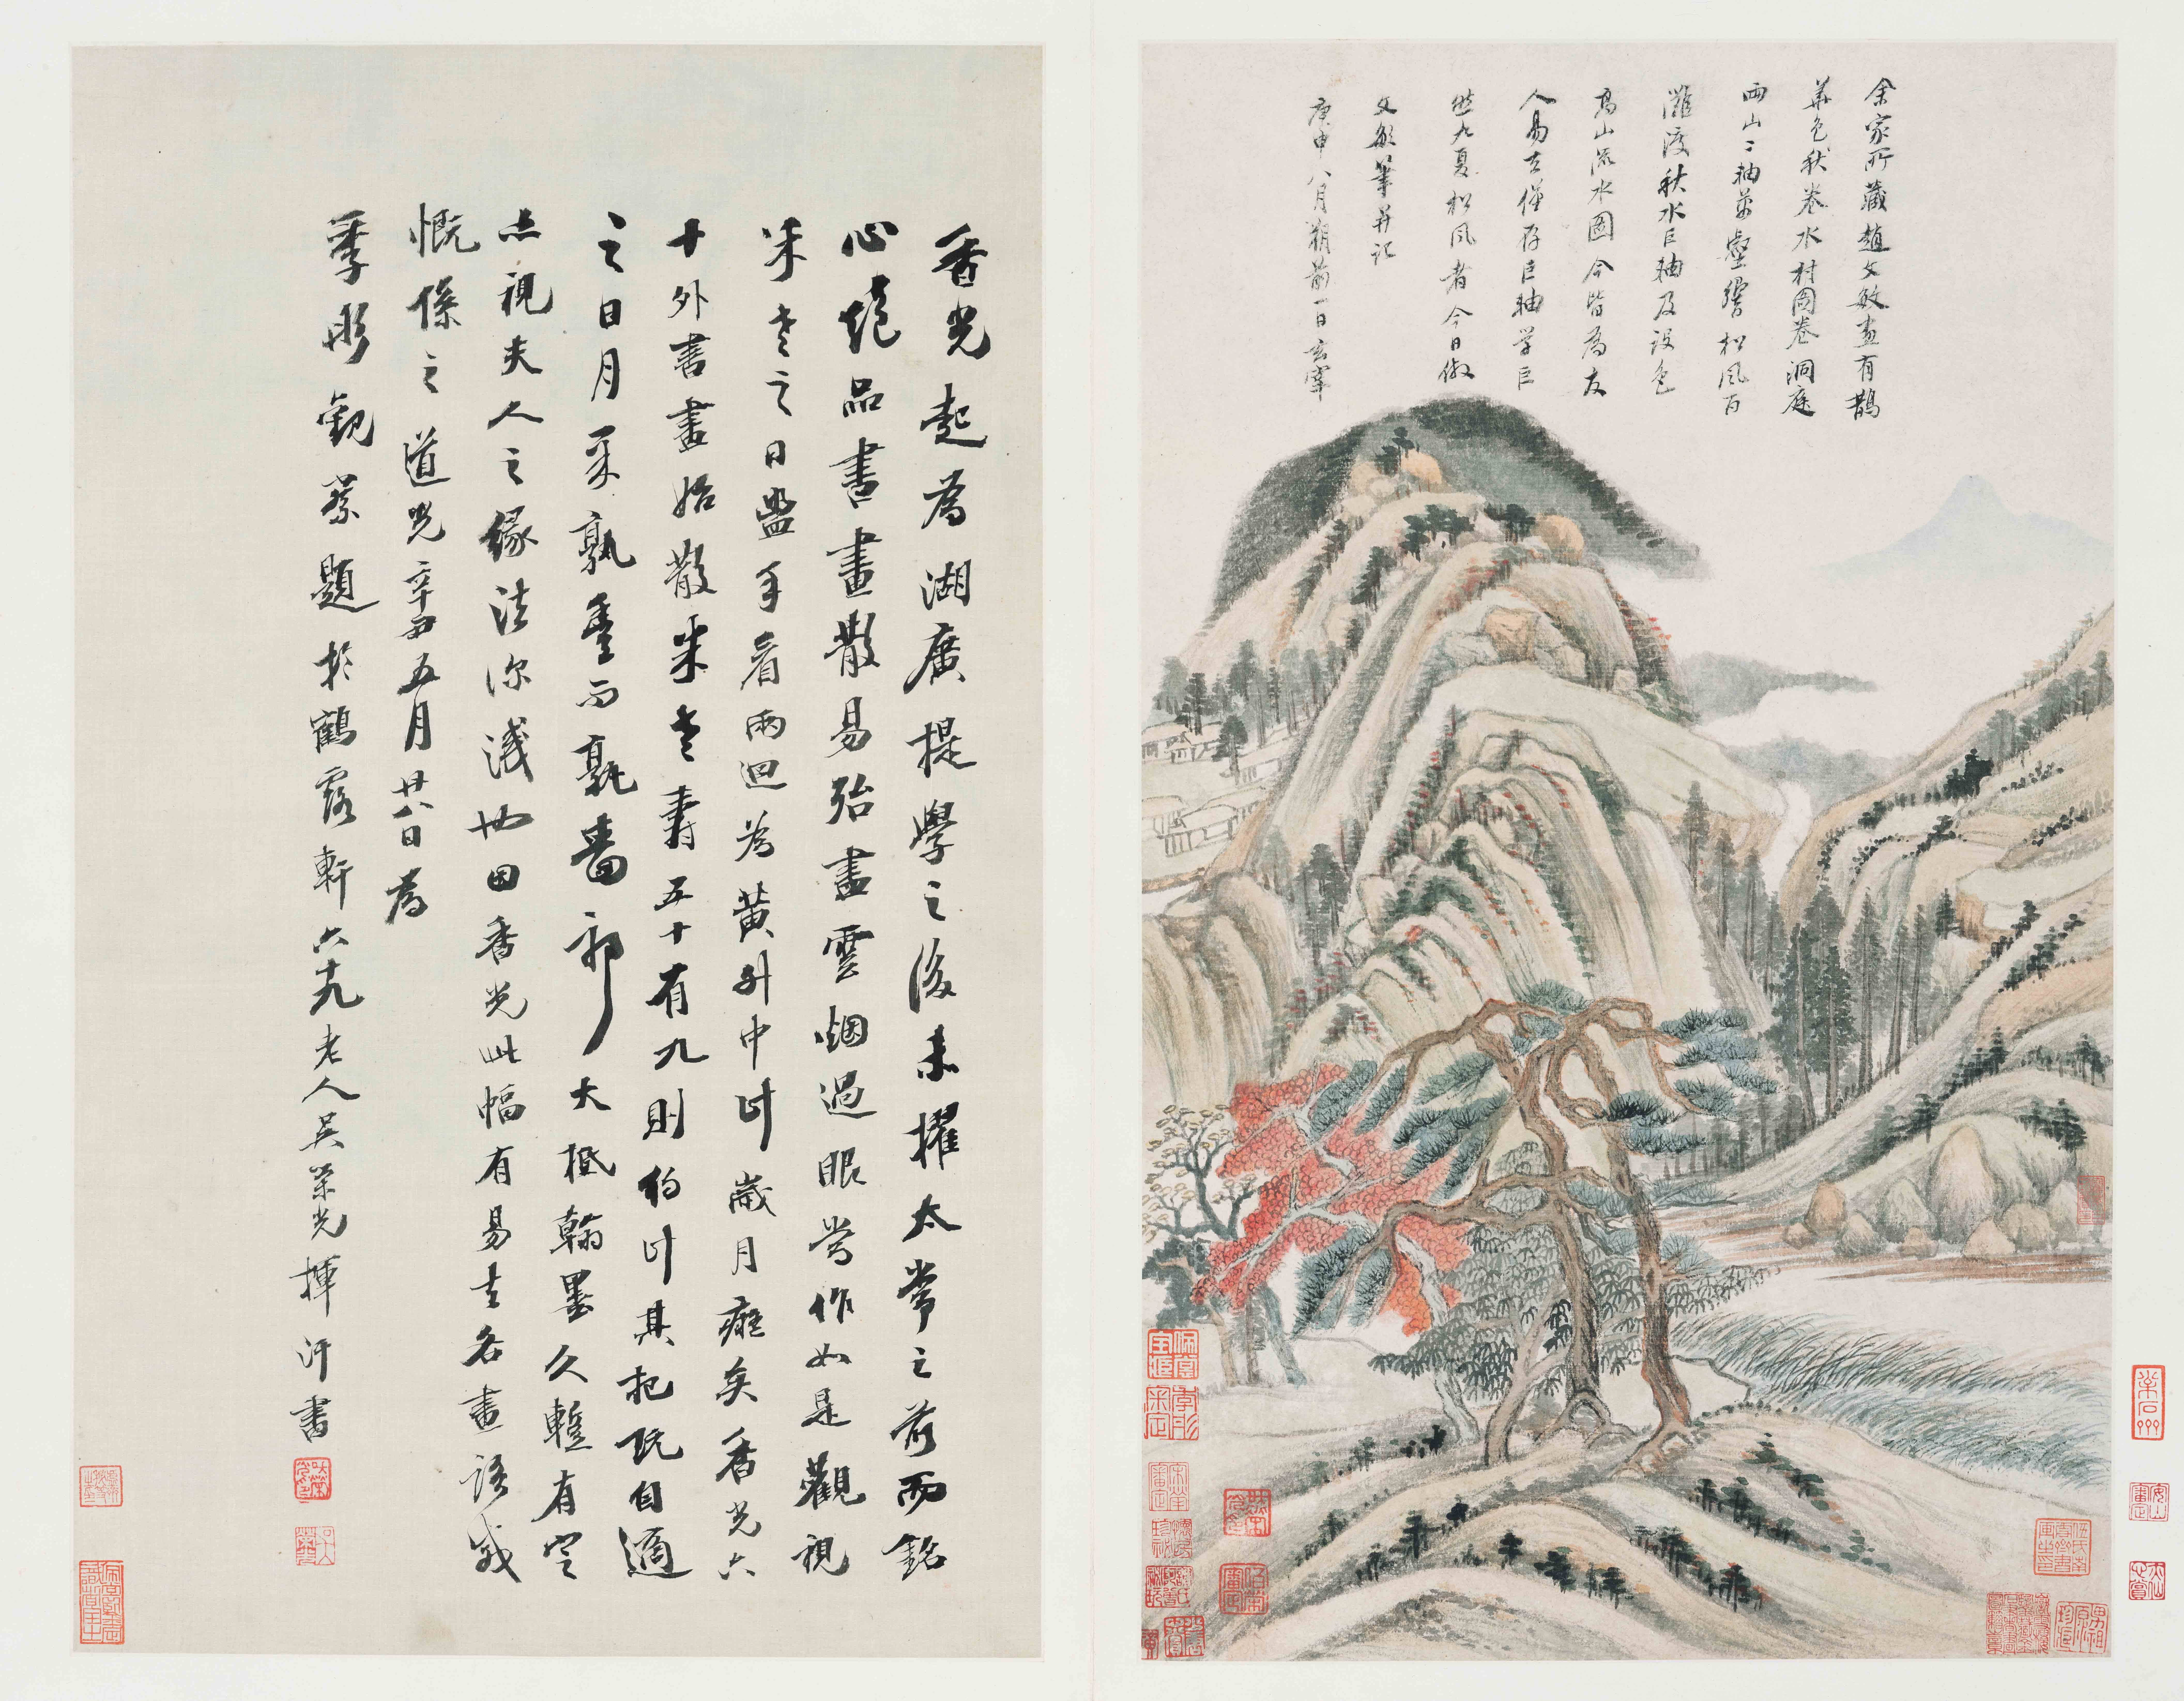 余家所藏趙文敏畫有鵲
華色秋卷水村圖卷洞庭
兩山二軸萬壑響松風百
灘渡秋水巨軸及設色
高山流水圖今皆為友
人易去僅存巨軸学巨
然九夏松風者今日倣
文敏筆并記
庚申八月朔前一日玄宰
香光起為湖廣提學之後未擢太常之前而銘
心絕品書畫散易殆盡雲烟過眼當作如是觀視
米老之日盥手看兩迴為中計歲月矣香光六
十外書畫始散米老壽五十有九則約計其把玩自適
之日月孰豐而孰嗇邪大抵翰墨久暫有定
亦視夫人之緣法深淺也因香光此幅有易去名畫語感
慨係之道光辛丑五月廿八日為
季彤觀察題於鶴露軒六十九老人吳榮光揮汗書